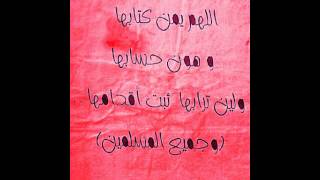 اللهم يمن كتابها
و هون حسابها
ولين ترابها ثبت أقدامها
(وجميع المسلمين)